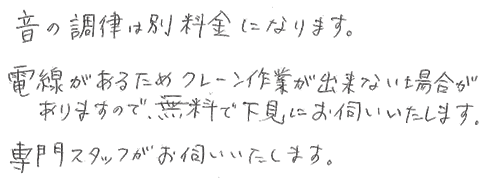 音の調律は別料金になります。
電線があるためクレーン作業が出来ない場合が
ありますので、無料で下見にお伺いいたします。
専門スタッフがお伺いいたします。